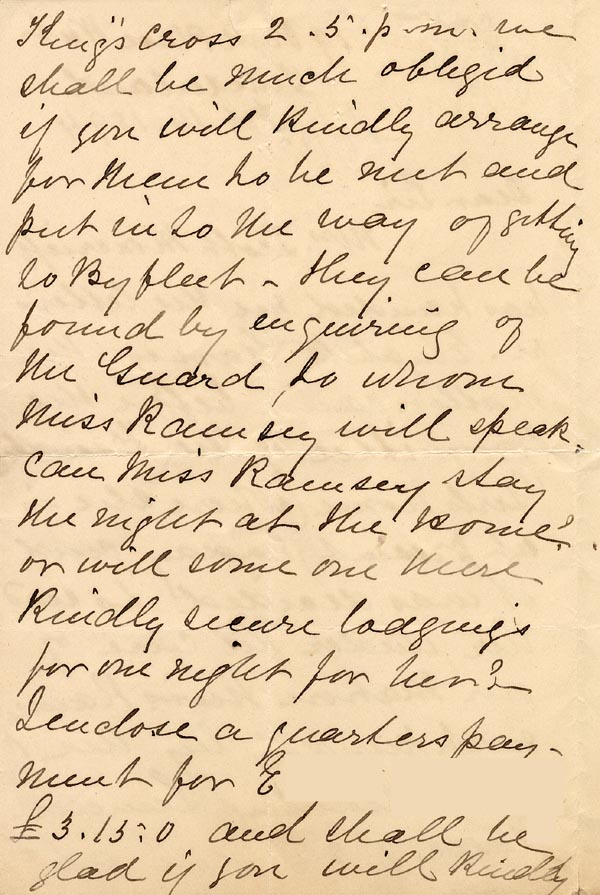 King's Cross 2.5.p.m. we
shall be much obligid
if you will kindly arrange
for them to be met and
put into the way of getting
to Byfleet - they can be
found by enquiring of
the Guard, to whom
Miss Ramsey will speak.
Can Miss Ramsey stay
the night at the Home?
or will some one there
kindly secure lodgings
for one night for her?
I enclose a quarters pay-
ment for E
£3.15.0 and shall be
glad if you will kindly